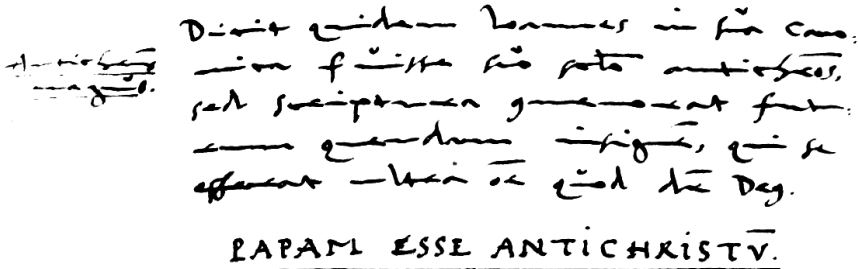 Antichrūs
magnꝰ.
Dixit quidem Ioannes in sua Cano:
nica fuisse suo sctō antichrōs,
sed scriptura commemorat futu:
rum quendam insignē, qui se
efferat ultra oē quod dr̄ Deꝰ.
PAPAM ESSE ANTICHRISTV̄.